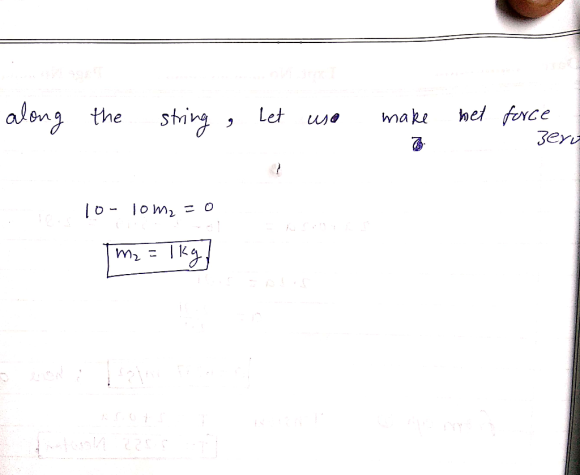 along the string, Let us make net force
zero
10 - 10m₂ = 0
m₂ = 1kg